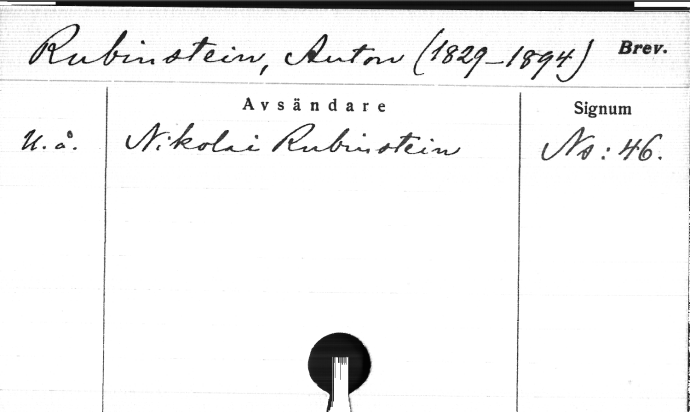 Rubinstein, Anton (1829-1894) Brev.
Avsändare Signum
U. å. Nikolai Rubinstein Ns: 46.